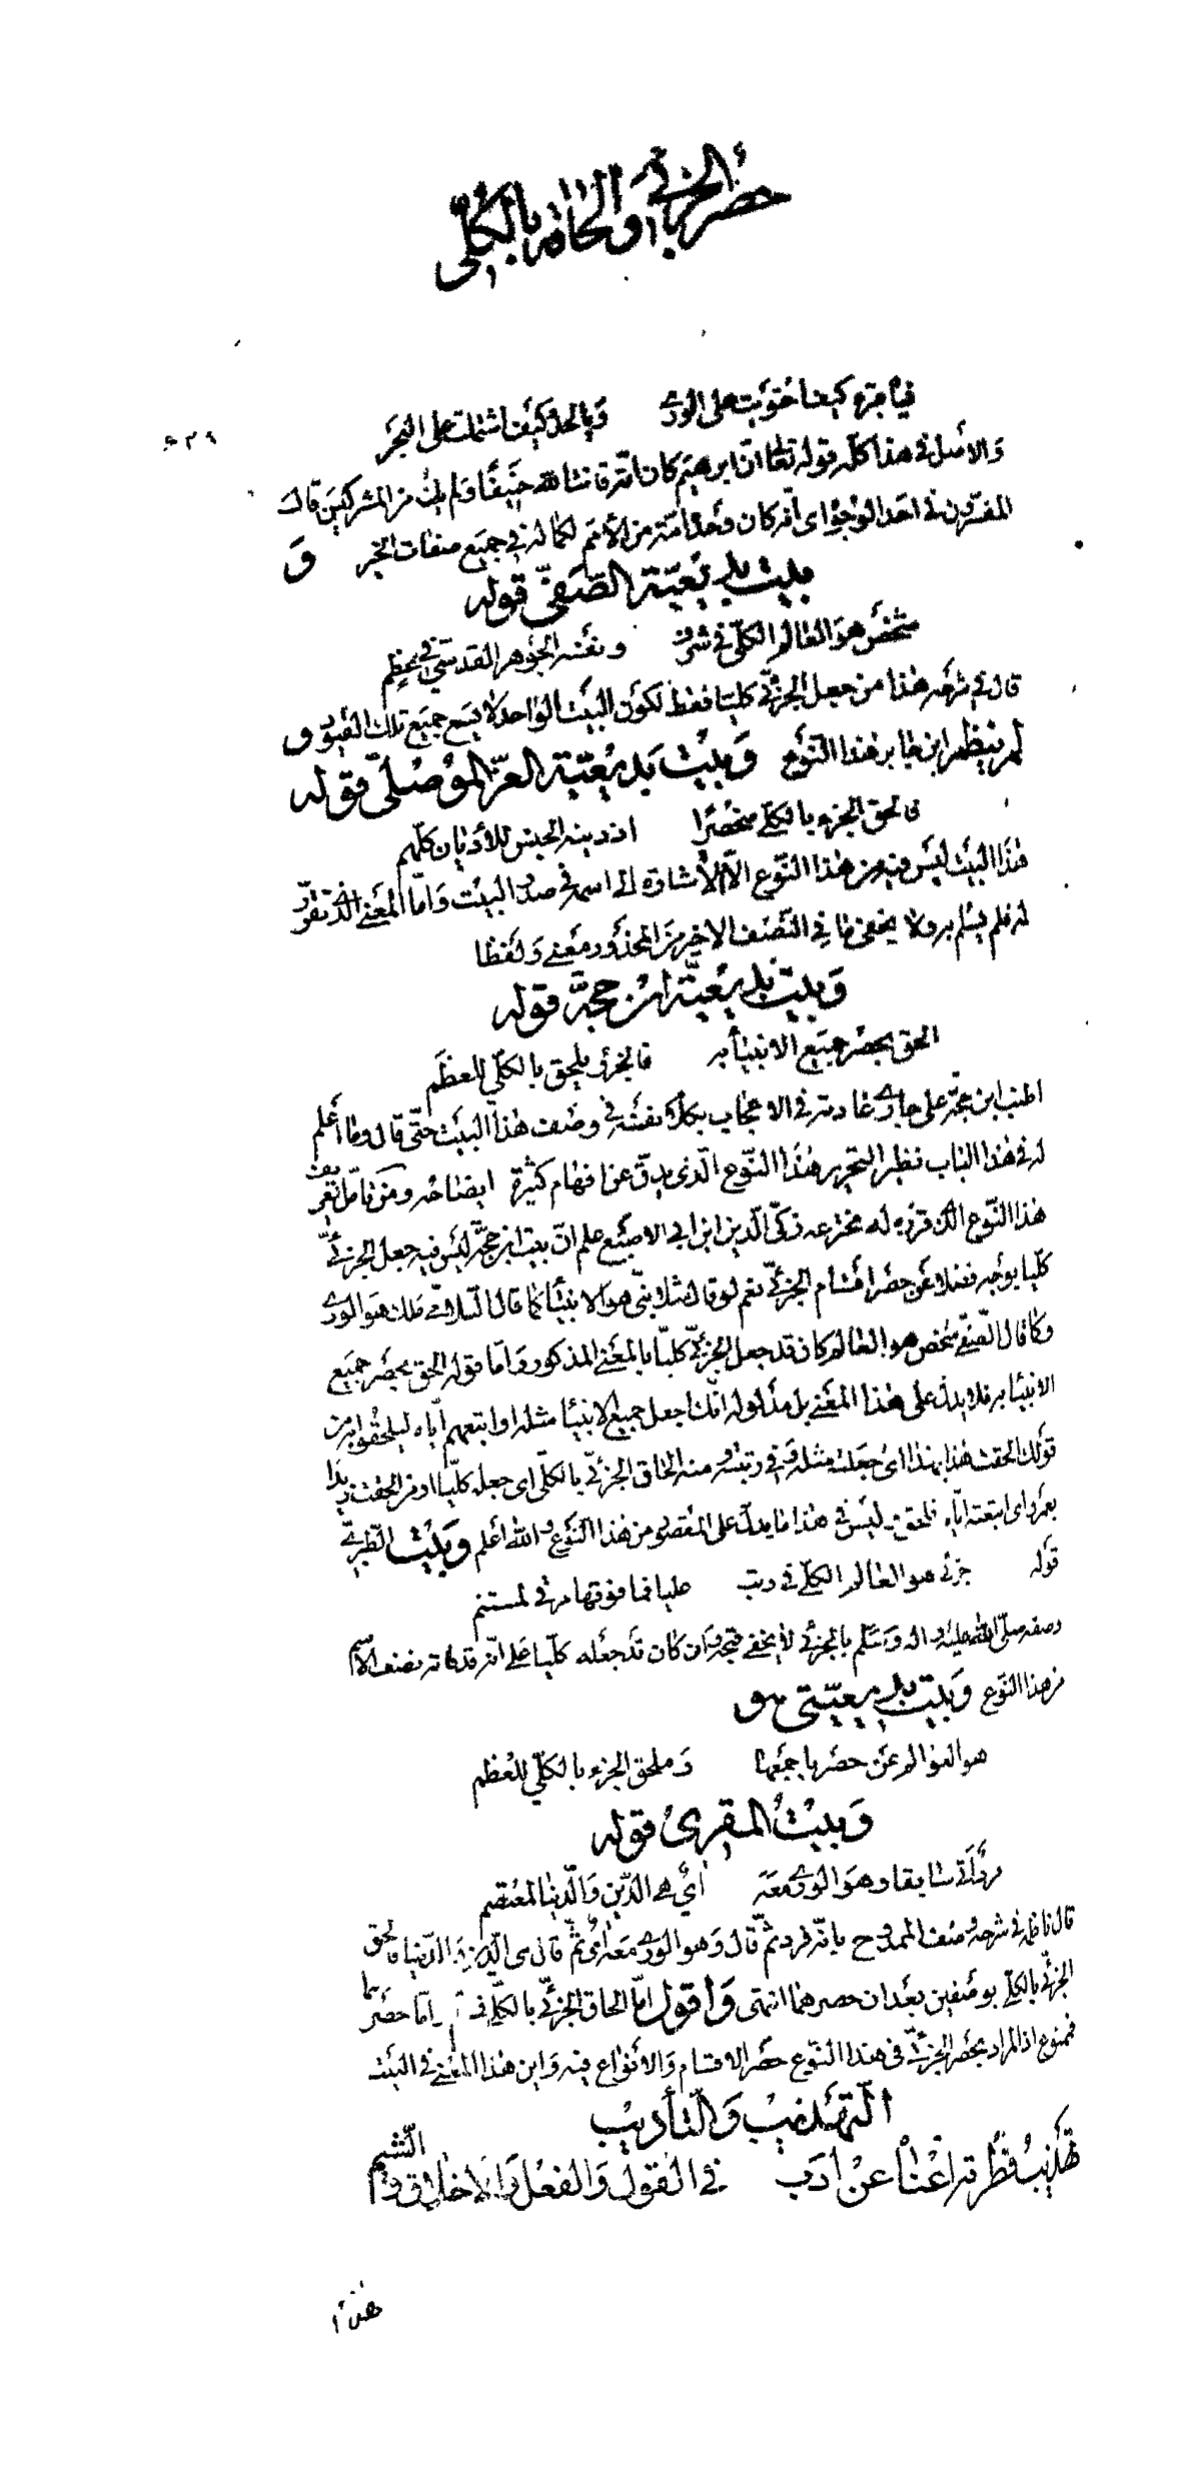 حصر الجزئي والحاقه بالكلي
فيا قبره كيف احتويت على الورى ويا لحد كيف اشتملت على البحر
٦٢٩
والاصل في هذا كله قوله تعالى ان ابرهيم كان امة قانتا لله حنيفا ولم يك من المشركين قال
المفسرون في احد الوجوه اى انه كان وحده امة من الأمم لكماله في جميع صفات الخير و
بيت بديعية الصفي قوله
شخص هو العالم الكلي في شرف ونفسه الجوهر القدسي في عظم
قال في شرحه هذا من جعل الجزئي كليا فقط لكون البيت الواحد لا يسع جميع تلك القيود و
لم ينظم ابن جابر هذا النوع وبيت بديعية العز الموصلي قوله
فالحق الجزء بالكلي منحصرا اذ دينه الجنس للأديان كلهم
هذا البيت ليس فيه من هذا النوع الا الاشارة الى اسمه في صدر البيت واما المعنى الذي تقرر
له فلم يسلم به ولا يخفى ما في النصف الاخير من المحذور معنى ولفظا
وبيت بديعية ابن حجة قوله
الحق بحصر جميع الانبياء به فالجزئى يلحق بالكلي للعظم
اطنب ابن حجة على جارى عادته في الاعجاب بكل نفثة في وصف هذا البيت حتى قال وما أعلم
له في هذا الباب نظير التحرير هذا النوع الذي يدق عن افهام كثيرة ايضاحه ومن تامل تعريف
هذا النوع الذي قرره له مخترعه زكي الدين ابن ابي الاصبع علم ان بيت ابن حجة ليس فيه جعل الجزئي
كليا بوجه فضلا عن حصر اقسام الجزئي نعم لو قال مثلا نبي هو الانبياء كما قال السلامي ملك هو الورى
وكما قال الصفي شخص هو العالم كان قد جعل الجزئي كليا بالمعنى المذكور واما قوله الحق بحصر جميع
الانبياء به فلا يدل على هذا المعنى بل مدلوله انك اجعل جميع الانبياء مثله او اتبعهم اياه ليلحقوا به من
قولك الحقت هذا بهذا اى جعلته مثله في رتبته ومنه الحاق الجزئي بالكلي اى جعله كليا او من الحقت زيدا
بعمرو اى اتبعته اياه فلحق به ليس في هذا ما يدل على المقصود من هذا النوع والله أعلم وبيت الطبري
قوله جزئى هو العالم الكلي في رتب عليا فما فوقها مرقى لمستنم
وصفه صلى الله عليه واله وسلم بالجزئي لا يخفى قبحه وان كان قد جعله كليا على انه قد فاته نصف الاسم
من هذا النوع وبيت بديعيتى هو
هو العوالم عن حصر باجمعها وملحق الجزء بالكلي للعظم
وبيت المقرى قوله
فرد أتى سابقا وهو الورى معه أي هى الدين والدنيا لمعتصم
قال ناظمه في شرحه وصف الممدوح بانه فرد ثم قال وهو الورى معه اى ثم قال هى الدين والدنيا فالحق
الجزئي بالكلي بوصفين بعد ان حصرهما انتهى وأقول اما الحاق الجزئي بالكلي اما حصرهما
فممنوع اذ المراد بحصر الجزئي في هذا النوع حصر الاقسام والأنواع فيه واين هذا المعنى في البيت
التهذيب والتأديب
تهذيب فطرته اغناه عن أدب في القول والفعل والاخلاق والشيم
هذا